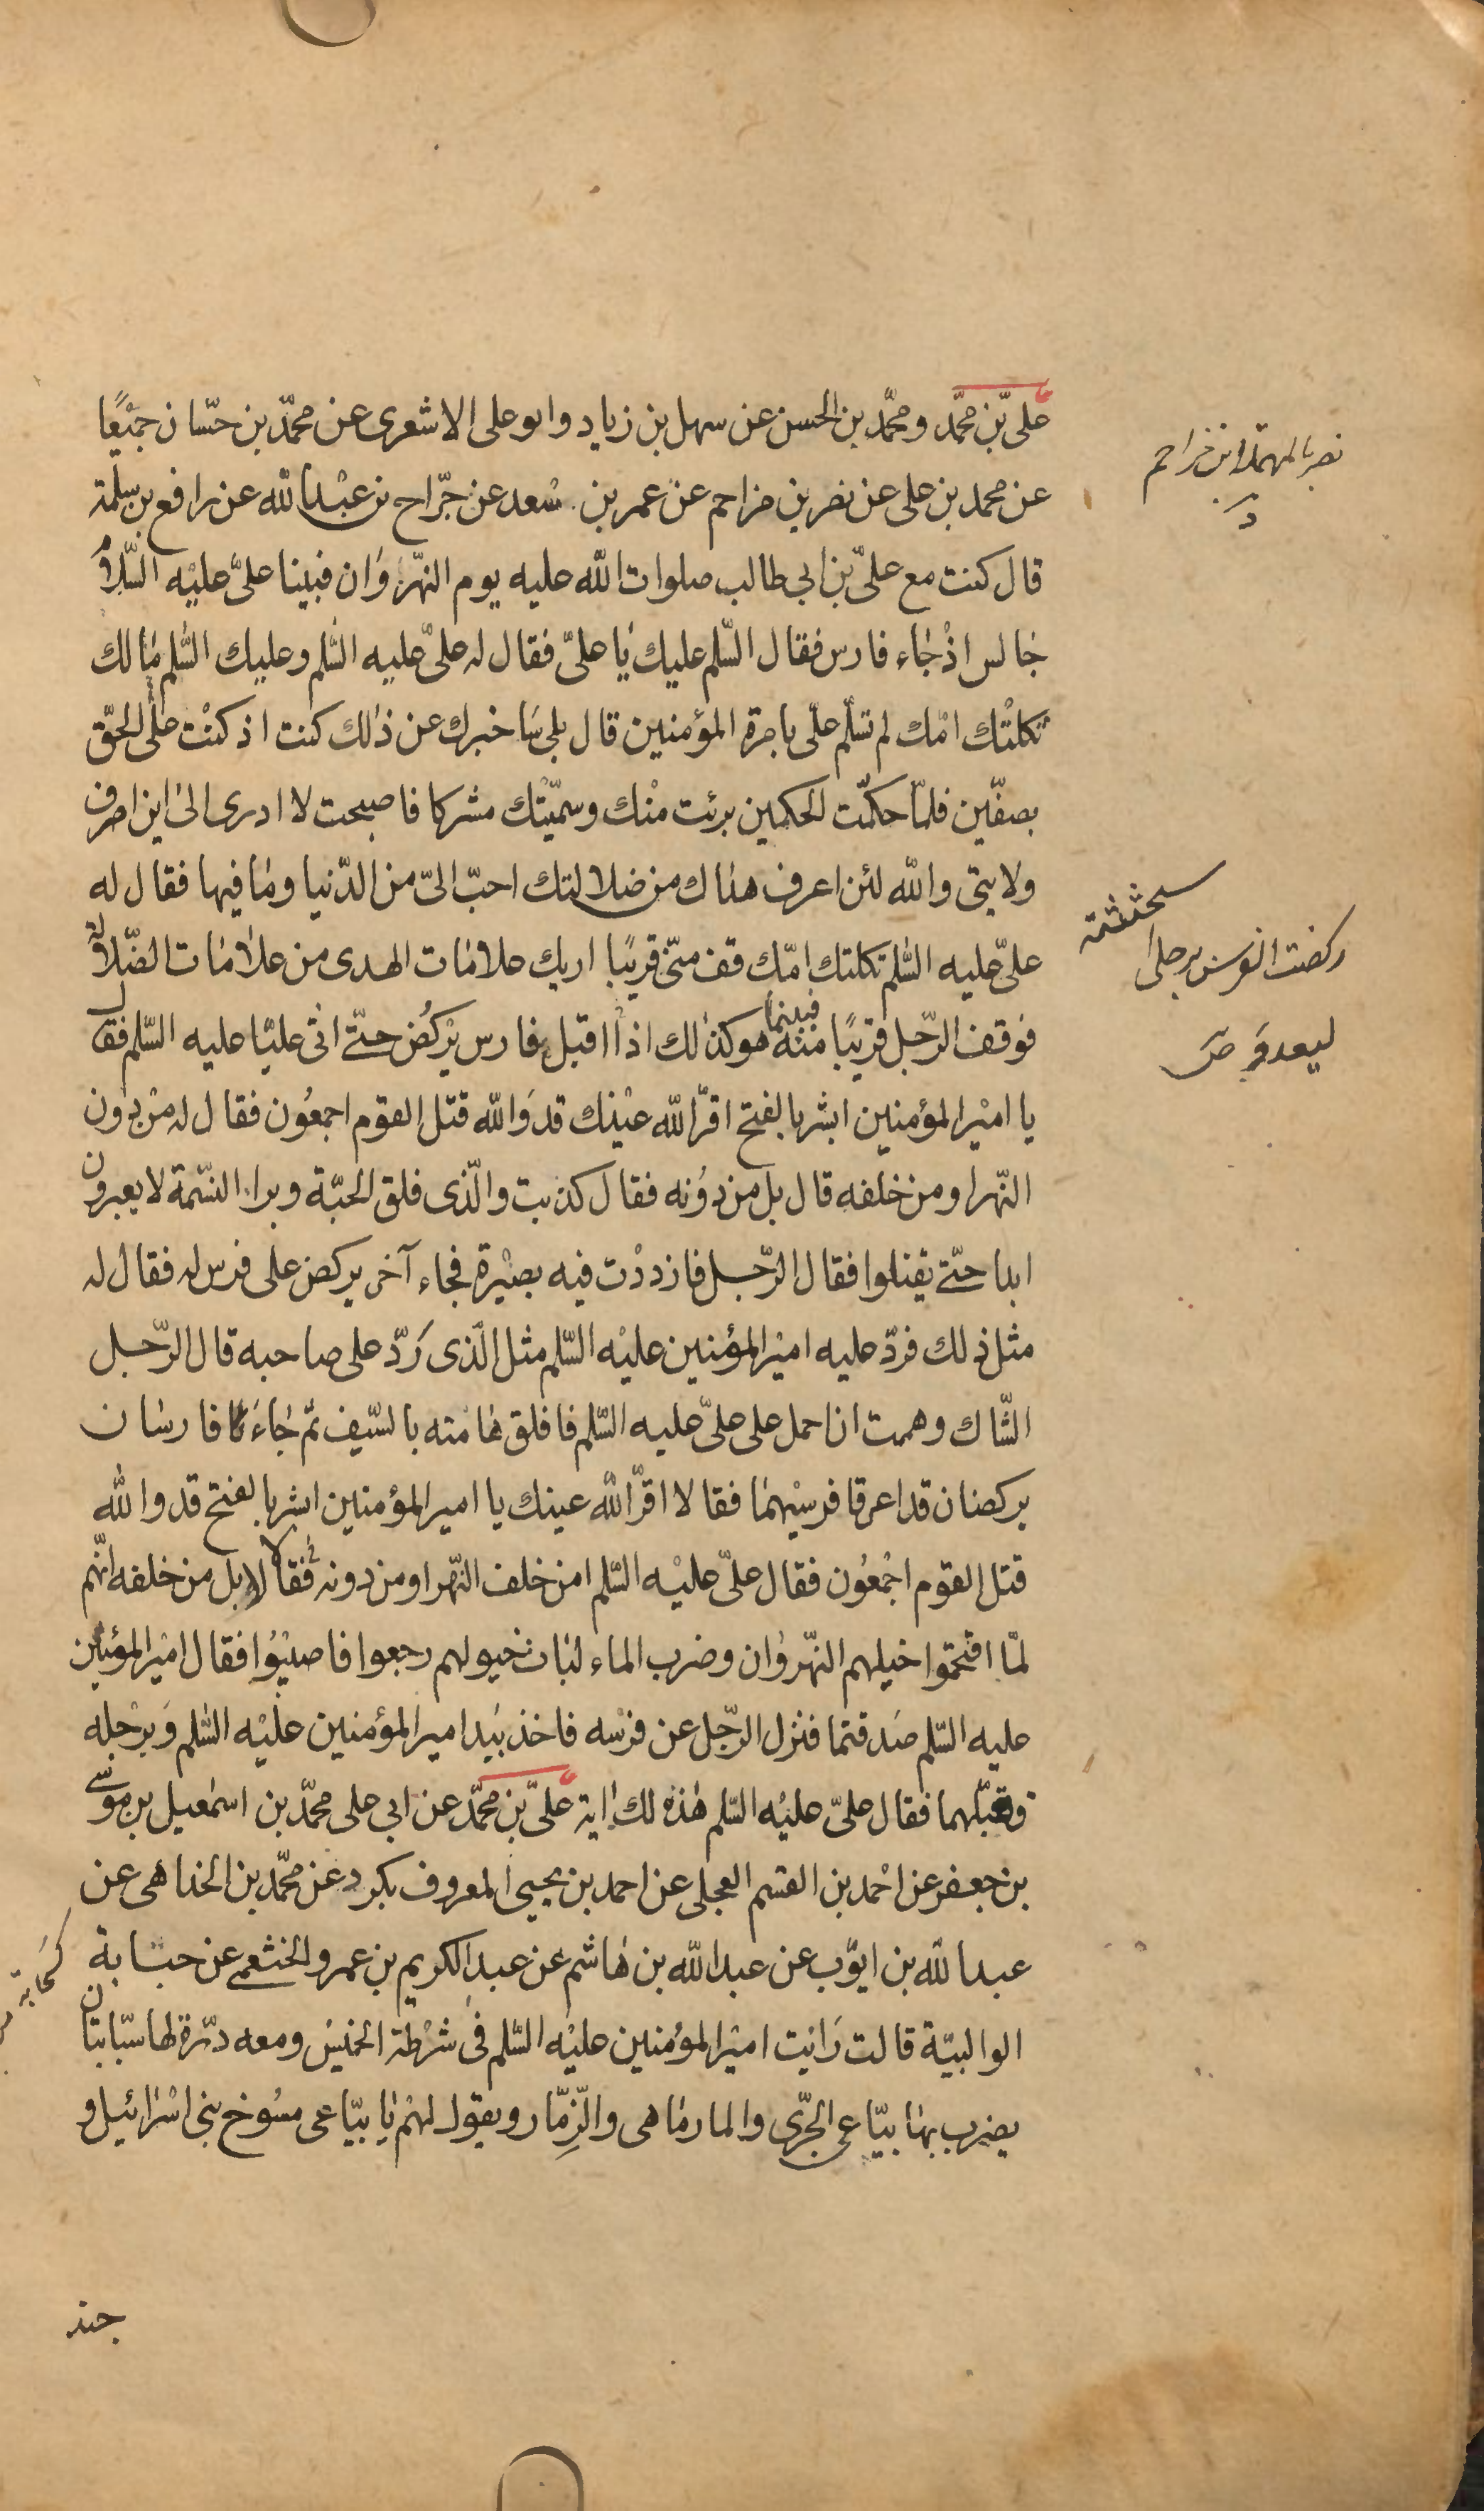 علىّ بن محمّد ومحمّد بن الحسن عن سهل بن زياد وابو على الاشعرى عن محمّد بن حسّان جميْعًا
عن محمد بن على عن نصر بن مزاحم عن عمر بن سْعد عن جرّاح بن عبْد الله عن رافع بن سلمة
قال كنت مع علىّ بن ابى طالب صلوات الله عليه يوم النّهروَان فبينا علىّ عليْه السّلامُ
جالس اذْ جَاء فارس فقال السّلم عليك يَا علىّ فقال له علىّ عليه السّلم وعليك السّلم مَا لك
ثكلتْك امّك لم تسلّم علىّ بامرة المؤمنين قال بلى سَاخبرك عن ذلك كنت اذ كنْت على الحقّ
بصفّين فلمّا حكمّت الحكمين برئت منْك وسمّيْتك مشركا فاصبحت لا ادرى الى اين اصرف
ولايتى والله لئن اعرف هداك من ضلالتك احبّ الىّ من الدّنيا ومَا فيها فقال له
علىّ عليه السّلم ثكلتك امّك قف منّى قريبًا اريك علامَات الهدى من علامَات الضّلالة
فوقف الرّجل قريبًا منه فبينما هو كذلك اذا اقبل فارس يرْكُض حتّى اتى عليّا عليه السّلم فقال
يا اميْر المؤمنين ابشر بالفتح اقرّ الله عيْنك قد وَالله قتل القوم اجمعُون فقال له منْ دون
النّهر او من خلفه قال بل من دوُنه فقال كذبت والّذى فلق الحبّة وبرا النسّمة لا يعبرون
ابدا حتّى يقتلوا فقال الرّجل فازددْت فيه بصيْرة فجاء آخر يركض على فرس له فقال له
مثل ذلك فردّ عليه اميْر المؤمنين عليْه السّلم مثل الّذى رَدّ على صاحبه قال الرّجل
الشّاك وهممت ان احمل على علىّ عليه السّلم فافلق هَامته بالسّيف ثمّ جَاءَ فارسَان
يركضان قد اعرقا فرسيْهمَا فقالا اقرّ الله عينك يا امير المؤمنين ابشر بالفتح قد والله
قتل القوم اجْمعُون فقال علىّ عليْه السّلم امن خلف النّهر او من دونه فقالا لا بل من خلفه انّهم
لمّا اقتحموا خيلهم النّهروَان وضرب الماء لبات خيولهم رجعوا فاصيْبُوا فقال اميْر المؤمنين
عليه السّلم صَدقتما فنزل الرّجل عن فرسْه فاخذ بيَد امير المؤمنين عليْه السّلم وَبرْجله
فقبّلهما فقال علىّ عليْه السّلم هَذه لك اية علىّ بن محمّد عن ابى على محمّد بن اسمعيل بن موسى
بن جعفر عن احْمد بن القسم العجلى عن احمد بن يحيى المعروف بكرد عن محمّد بن الخداهى عن
عبد الله بن ايوّب عن عبد الله بن هَاشم عن عبد الكريم بن عمرو الخثعمى عن حبابة
الوالبيّة قالت رَايت اميْر المؤمنين عليْه السّلم فى شرْطة الخميس ومعه درّة لها سبّابتان
يضرب بهَا بيّاعى الجرّى والمارمَاهى والزِّمّار ويقول لهمْ يَا بيّاعى مسُوخ بنى اسْرَائيل و
جند
نصر بالمهملة ابن مزاحم
د
ركضت الفرس برجلى
استحثثته
ليعدو ص
كسحابة